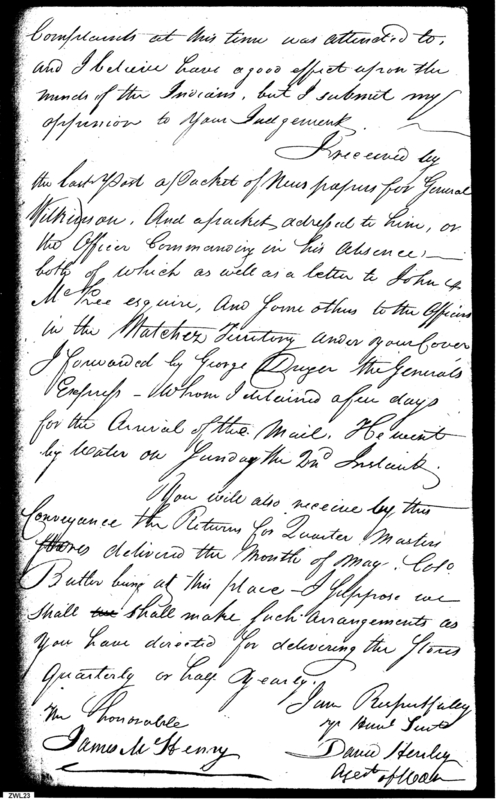 Complaints at this time was attended to,
and I beleive have a good effect upon the
minds of the Indians, but I submit my
oppinion to your Judgement.
I received by
the last Post a Packet of News papers for General
Wilkinson. And a packet adressed to him, or
the Officer Commanding in his absence;
both of which as well as a letter to John
McKee esquire, And some others to the Officers
in the Natchez Territory under your Cover
I forwarded by George Druyer the Generals
Express - Whom I detained a few days
for the Arrival of the Mail. He went
by Water on Sunday the 2nd Instant.
You will also receive by this
Conveyance the Returns for Quarter Masters
Stores delivered the Month of May. Colo
Butler being at this place - I suppose we
shall shall make such arrangements as
you have directed for delivering the Stores
Quarterly or half yearly.
I am Respectfully
yr Humb Servt
The honorable
James McHenry
David Henley
Agent of War
ZWL23